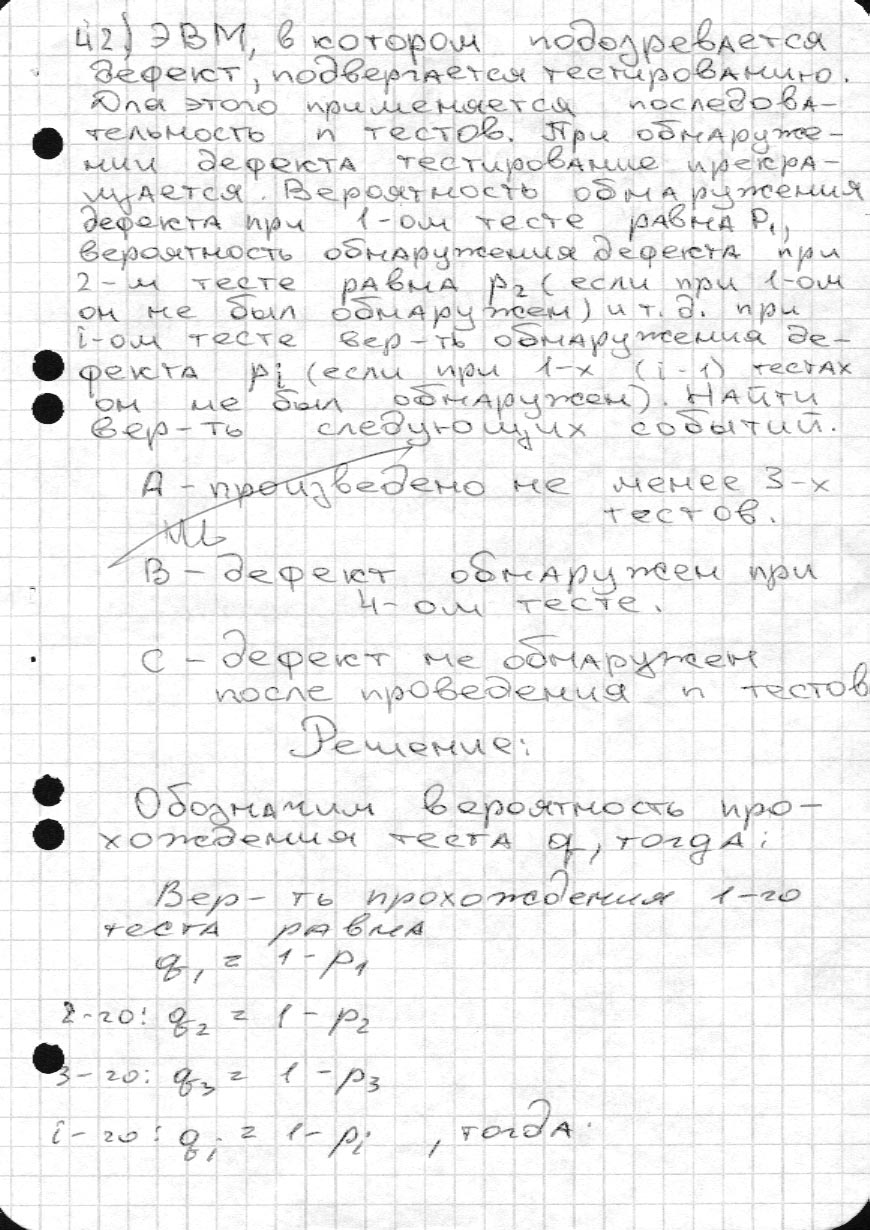 42) ЭВМ, в котором подозревается
дефект, подвергается тестированию.
Для этого применяется последова-
тельность n тестов. При обнаруже-
нии дефекта тестирование прекра-
щается. Вероятность обнаружения
дефекта при 1-ом тесте равна P₁,
вероятность обнаружения дефекта при
2-м тесте равна p₂ (если при 1-ом
он не был обнаружен) и т.д. при
i-ом тесте вер-ть обнаружения де-
фекта pi (если при 1-х (i-1) тестах
он не был обнаружен). Найти
вер-ть следующих событий.
A - произведено не менее 3-х
тестов.
B - дефект обнаружен при
4-ом тесте.
C - дефект не обнаружен
после проведения n тестов
Решение:
Обозначим вероятность про-
хождения теста q, тогда:
Вер-ть прохождения 1-го
теста равна
q₁ = 1-p₁
2-го: q₂ = 1-p₂
3-го: q₃ = 1-p₃
i-го: qi = 1-pi , тогда